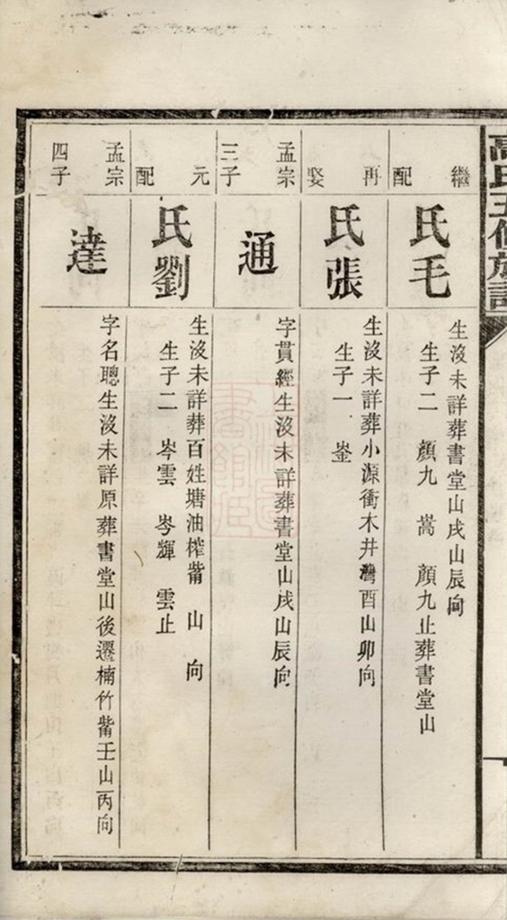 高氏五修族譜
繼配
毛氏
生沒未詳葬書堂山戌山辰向
生子二 顏九 嵩 顏九止葬書堂山
再娶
張氏
生沒未詳葬小源衝木井灣酉山卯向
生子一 崟
孟宗三子
通
字貫經生沒未詳葬書堂山戌山辰向
元配
劉氏
生沒未詳葬百姓塘油榨嘴 山 向
生子二 岑雲 岑輝 雲止
孟宗四子
達
字名聰生沒未詳原葬書堂山後遷楠竹嘴壬山丙向